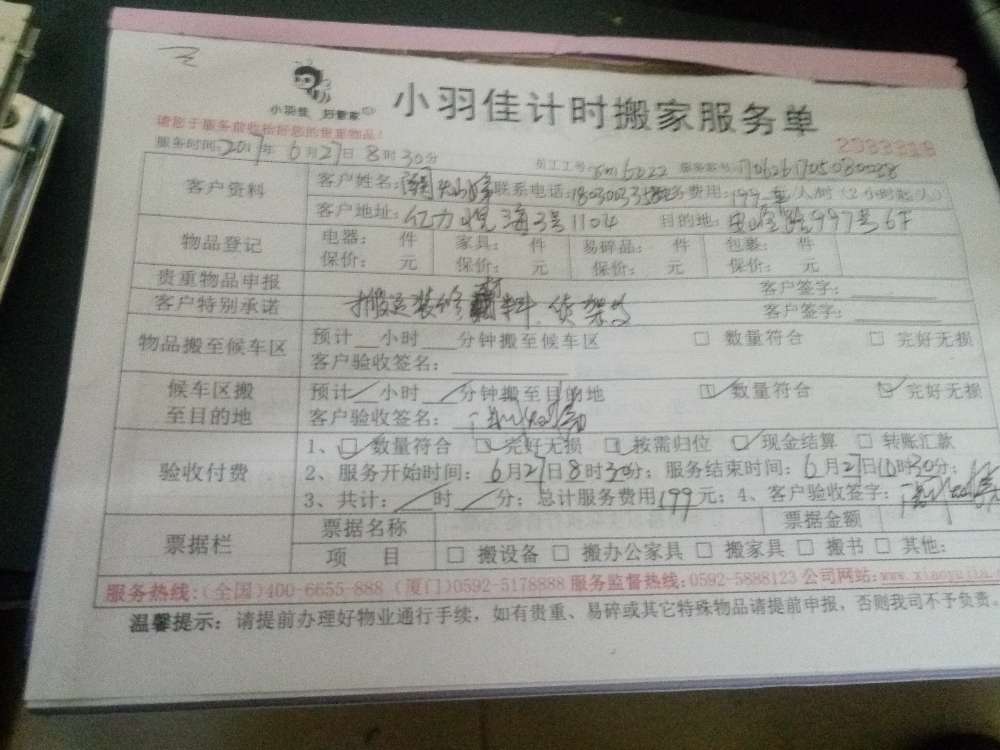 小羽佳 好管家
小羽佳计时搬家服务单
请您于服务前些检好您的贵重物品！
2333318
服务时间：2017年6月27日8时30分 员工工号：xm16022 服务单号：
客户资料
客户姓名： 联系电话： 服务费用：199元/人/时（2小时起/人）
客户地址：亿力悦海3号1104 目的地：997号6F
物品登记
电器： 件 家具： 件 易碎品： 件 包裹： 件
保价： 元 保价： 元 保价： 元 保价： 元
贵重物品申报 客户签字：
客户特别承诺 搬运装修材料、货架 客户签字：
物品搬至候车区
预计__小时__分钟搬至候车区 □ 数量符合 □ 完好无损
客户验收签名：
候车区搬至目的地
预计 小时 分钟搬至目的地 数量符合 完好无损
客户验收签名：
验收付费
1、数量符合 完好无损 按需归位 现金结算 □ 转账汇款
2、服务开始时间：6月27日8时30分；服务结束时间：6月27日10时30分；
3、共计： 时 分；总计服务费用199元；4、客户验收签字：
票据栏
票据名称 票据金额
项 目 □ 搬设备 □ 搬办公家具 □ 搬家具 □ 搬书 □ 其他：
服务热线：(全国)400-6655-888 (厦门)0592-5178888 服务监督热线：0592-5888123 公司网站：www.xiaoyujia.
温馨提示：请提前办理好物业通行手续，如有贵重、易碎或其它特殊物品请提前申报，否则我司不予负责。